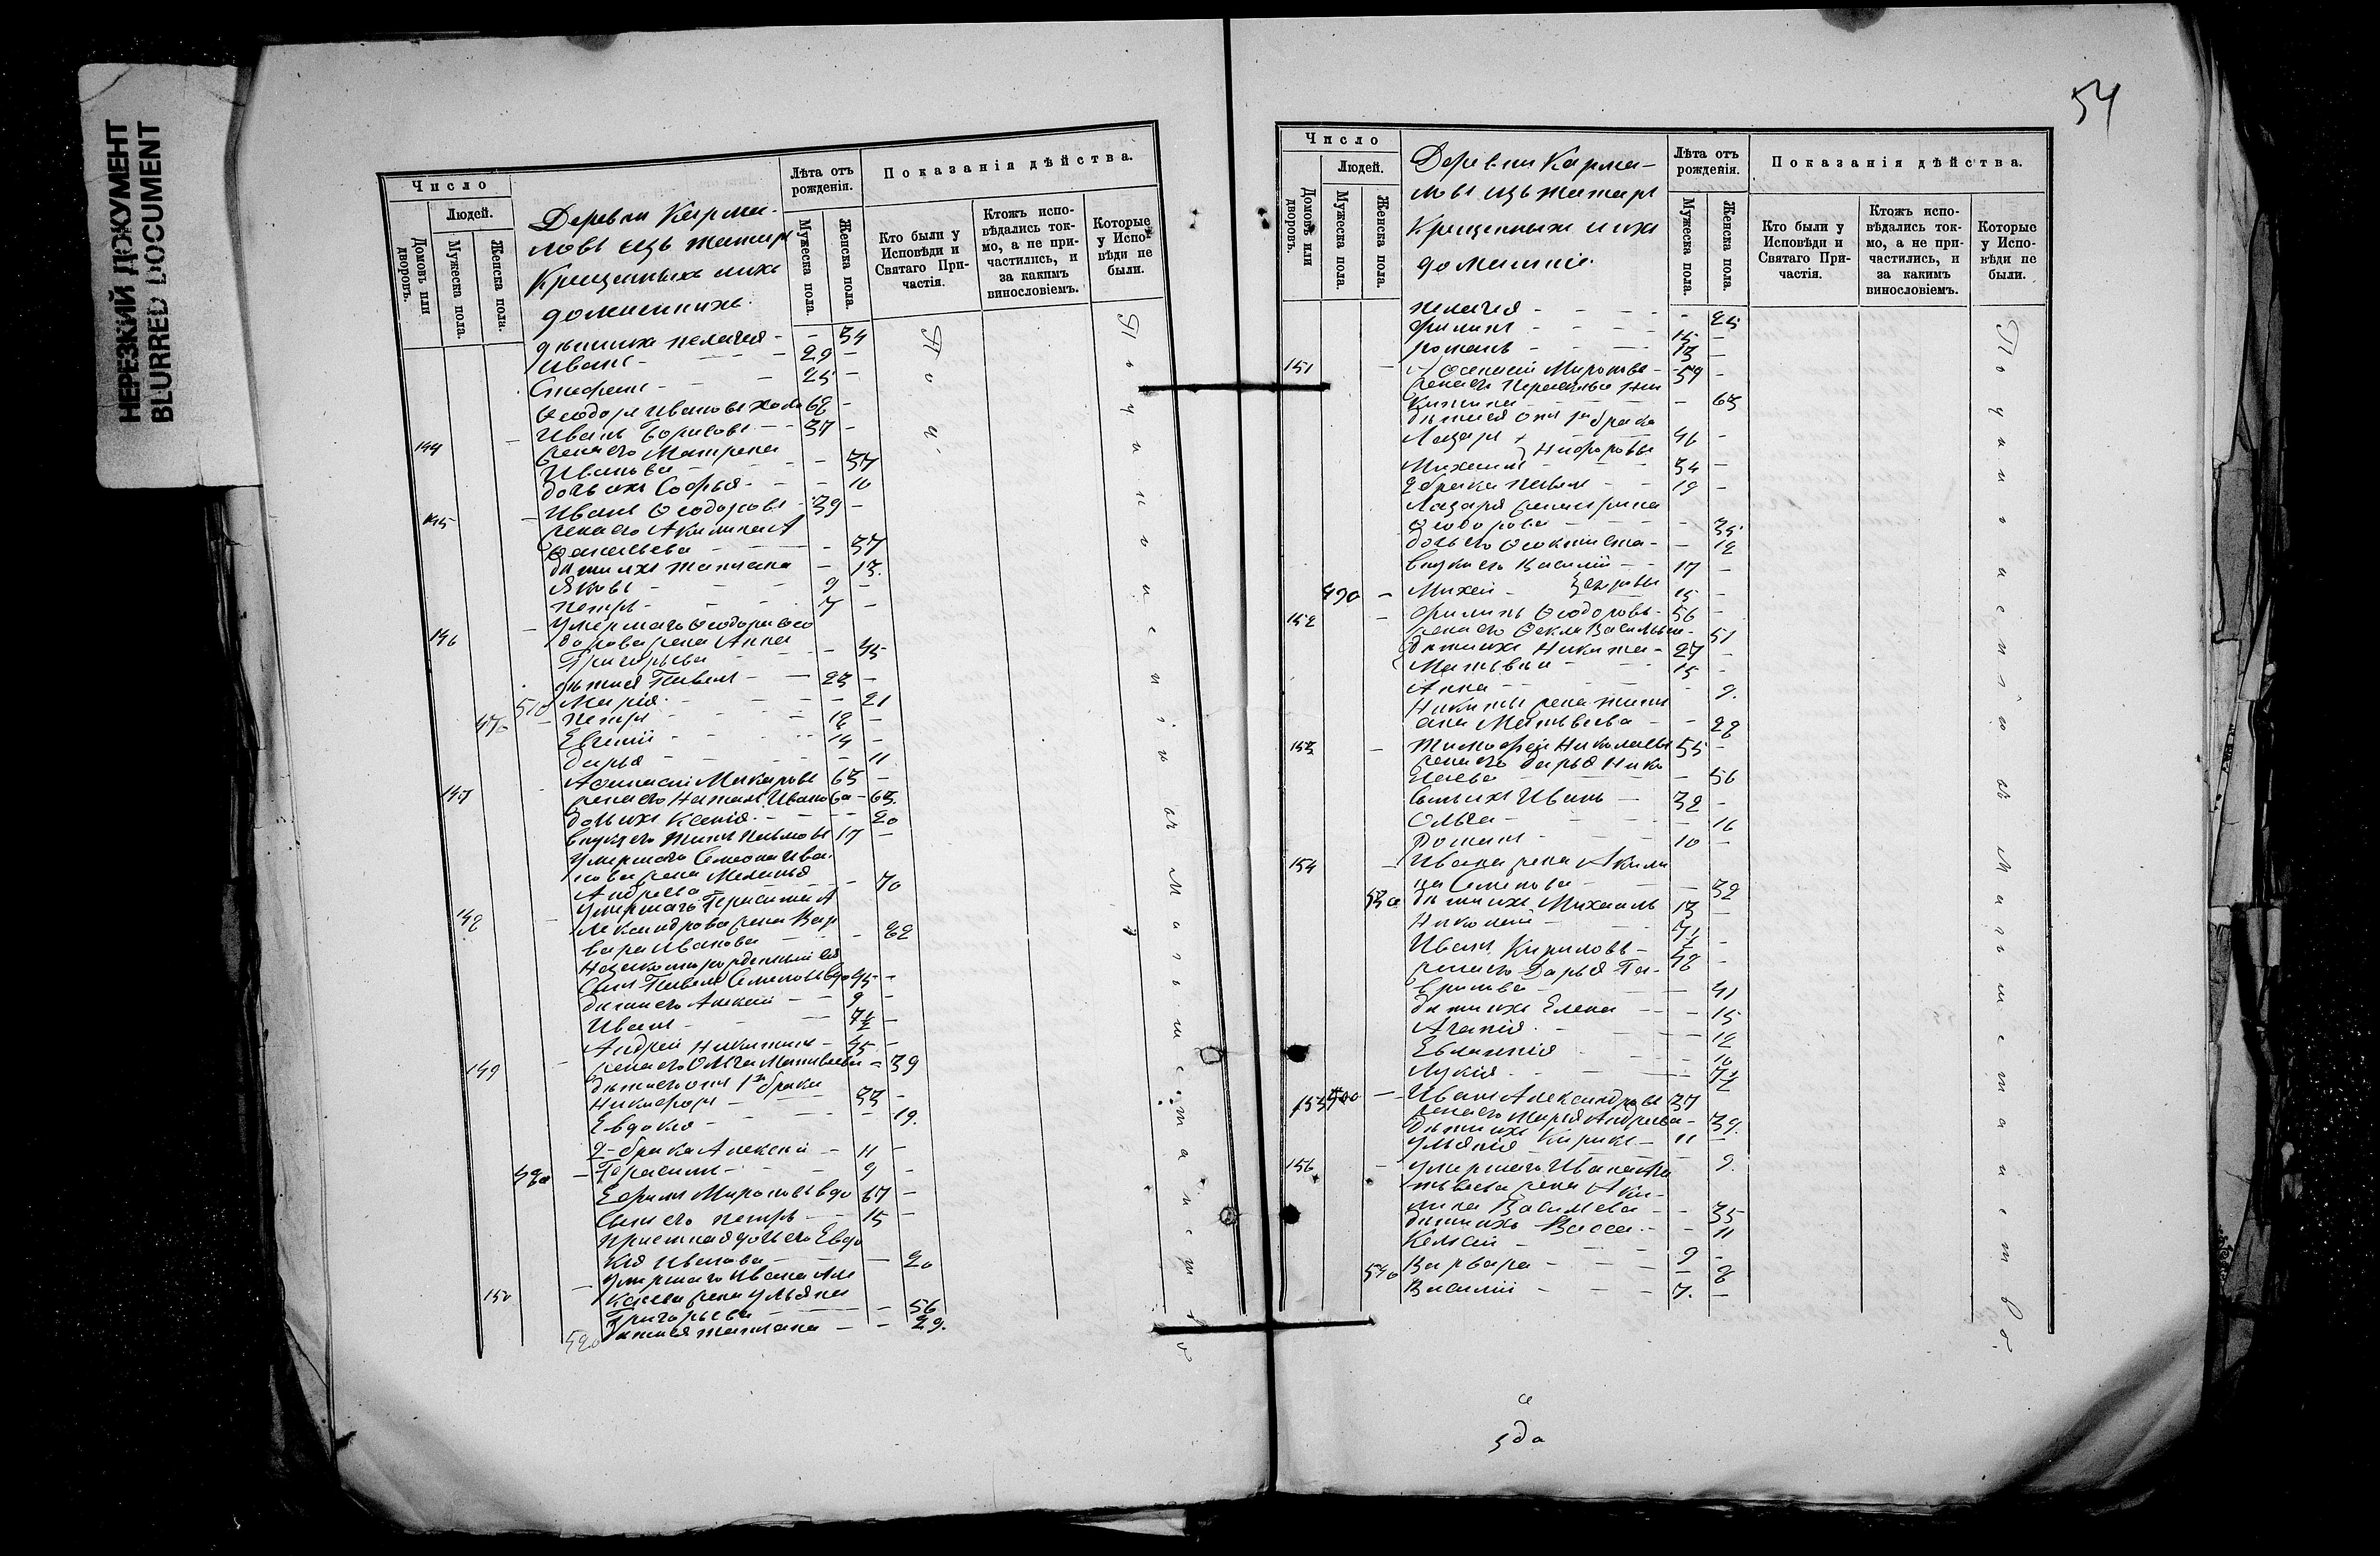 НЕРЕЗКИЙ ДОКУМЕНТ
BLURRED DOCUMENT
Число
Людей.
Домовъ или дворовъ.
Мужеска пола.
Женска пола.
Деревни Карма-
ловъ изъ татаръ
Крещенныхъ ихъ
домашнихъ
Лѣта отъ рожденія.
Мужеска пола.
Женска пола.
Показанія дѣйства.
Кто были у Исповѣди и Святаго Причастія.
Ктожъ исповѣдались токмо, а не причастились, и за какимъ винословіемъ.
Которые у Исповѣди не были.
дѣти ихъ Пелагея - - 34
Иванъ - 29 -
Стефанъ - 25 -
Ѳеодоръ Ивановъ 62 -
144 - Иванъ Борисовъ - 37 -
жена его Матрена
Иванова - - 37
дочь ихъ Софья - - 10
145 - Иванъ Ѳеодоровъ - 39 -
жена его Акилина А
ѳанасьева - - 37
дѣти ихъ Татіана - 13.
Яковъ - 9 -
Петръ - 7 -
146 - Умершаго Ѳеодора Ѳео
дорова жена Анна
Григорьева - - 45
дѣти ея Павелъ - 23 -
510 Марія - - 21
470 - Петръ - 18 -
Евгеній - 14 -
Дарья - - 11
147 Аѳанасій Макаровъ 63 -
жена его Натал. Иванова - 63.
дочь ихъ Ксенія - - 20
внукъ его 17 -
Умершаго Семеона Ива-
нова жена Меланья
Андреева - - 70
148 - Умершаго Герасима А
лександрова жена Вар
вара Иванова - - 82
Сынъ Павелъ Семеновъ вдо 45 -
дѣти его Алексій - 9 -
Иванъ - 7½ -
149 - Андрей Никитинъ - 45 -
жена его Ольга Матвѣева - 39
дѣти его отъ 1го брака
Никифоръ - 23 -
Евдокія - - 19.
2- брака Алексій - 11 -
480 - Герасимъ - 9 -
Ефимъ Мироновъ вдо 67 -
Сынъ его Петръ - 15 -
Пріемная дочь его Евдо
кія Иванова - - 20
150 - Умершаго Ивана Але
ксѣева жена Ульяна
Григорьева - - 56
520 дѣти ея Татіана - - 29.
По
и
По уклоненію въ Магометанство
54
Число
Людей.
Домовъ или дворовъ.
Мужеска пола.
Женска пола.
Деревни Карма-
ловъ изъ татаръ
Крещенныхъ ихъ
домашніе
Лѣта отъ рожденія.
Мужеска пола.
Женска пола.
Показанія дѣйства.
Кто были у Исповѣди и Святаго Причастія.
Ктожъ исповѣдались токмо, а не причастились, и за какимъ винословіемъ.
Которые у Исповѣди не были.
Пелагея - - 25
Филипъ - 15 -
Романъ - 13 -
151 - Аѳанасій Мироновъ - 59 -
жена его Ни
китина - - 63
дѣти ея отъ 1го брака
Лазарь } 46 -
Никифоровы
Михаилъ 34 -
2 брака Павелъ - 19 -
Лазаря жена Ирина
Ѳеодорова - - 35
дочь его Ѳеоктиста - - 12
внуки его Василій - 17 -
490 - Михей - } 15 -
152 - Филипъ Ѳеодоровъ - 56 -
жена его Ѳекла Васильева - 51
дѣти ихъ Никита - 27 -
Матвѣй - 15 -
Анна - - 9.
Никиты жена Тати
ана Матвѣева - - 28
153 - Тимоѳей Николаевъ 55 -
жена его Дарья Нико
лаева - - 56
Сынъ ихъ Иванъ - 32 -
Ольга - - 16
Романъ - 10 -
154 - Ивана жена Акили
на Семенова - - 32
530 дѣти ихъ Михаилъ 13 -
Николай - 7½ -
Иванъ Кириловъ - 48 -
жена его Дарья Га-
врилова - - 41
дѣти ихъ Елена - - 15
Агапія - - 12
Евлампія - - 10
Лукія - - 7½
155 500 - Иванъ Александровъ 37
жена его Марія Андреева - 39.
дѣти ихъ Кирикъ - 11 -
Ульянія - 9.
156 - Умершаго Ивана Ма
твѣева жена Аки-
лина Васильева - - 35
дѣти ихъ Васса - - 11
Келсій - 9 -
540 Варвара - - 8
Василій - 7. -
По уклоненію въ Магометанство.